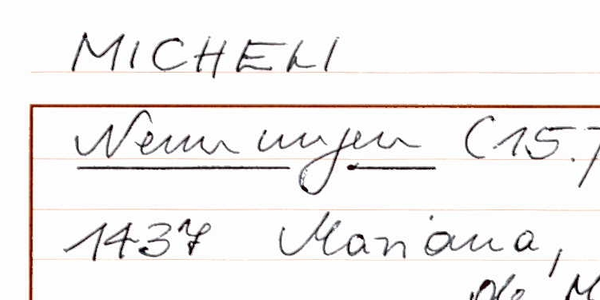 MICHELI
Nennungen (15.7
1437 Mariana,